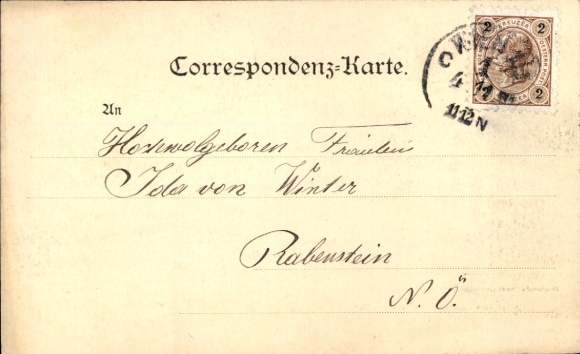 2 KREUZER 2
2 2
Correspondenz-Karte.
An
Hochwolgeboren Fräulein
Ida von Winter
Rabenstein
N. Ö.
4 11
11-12 N